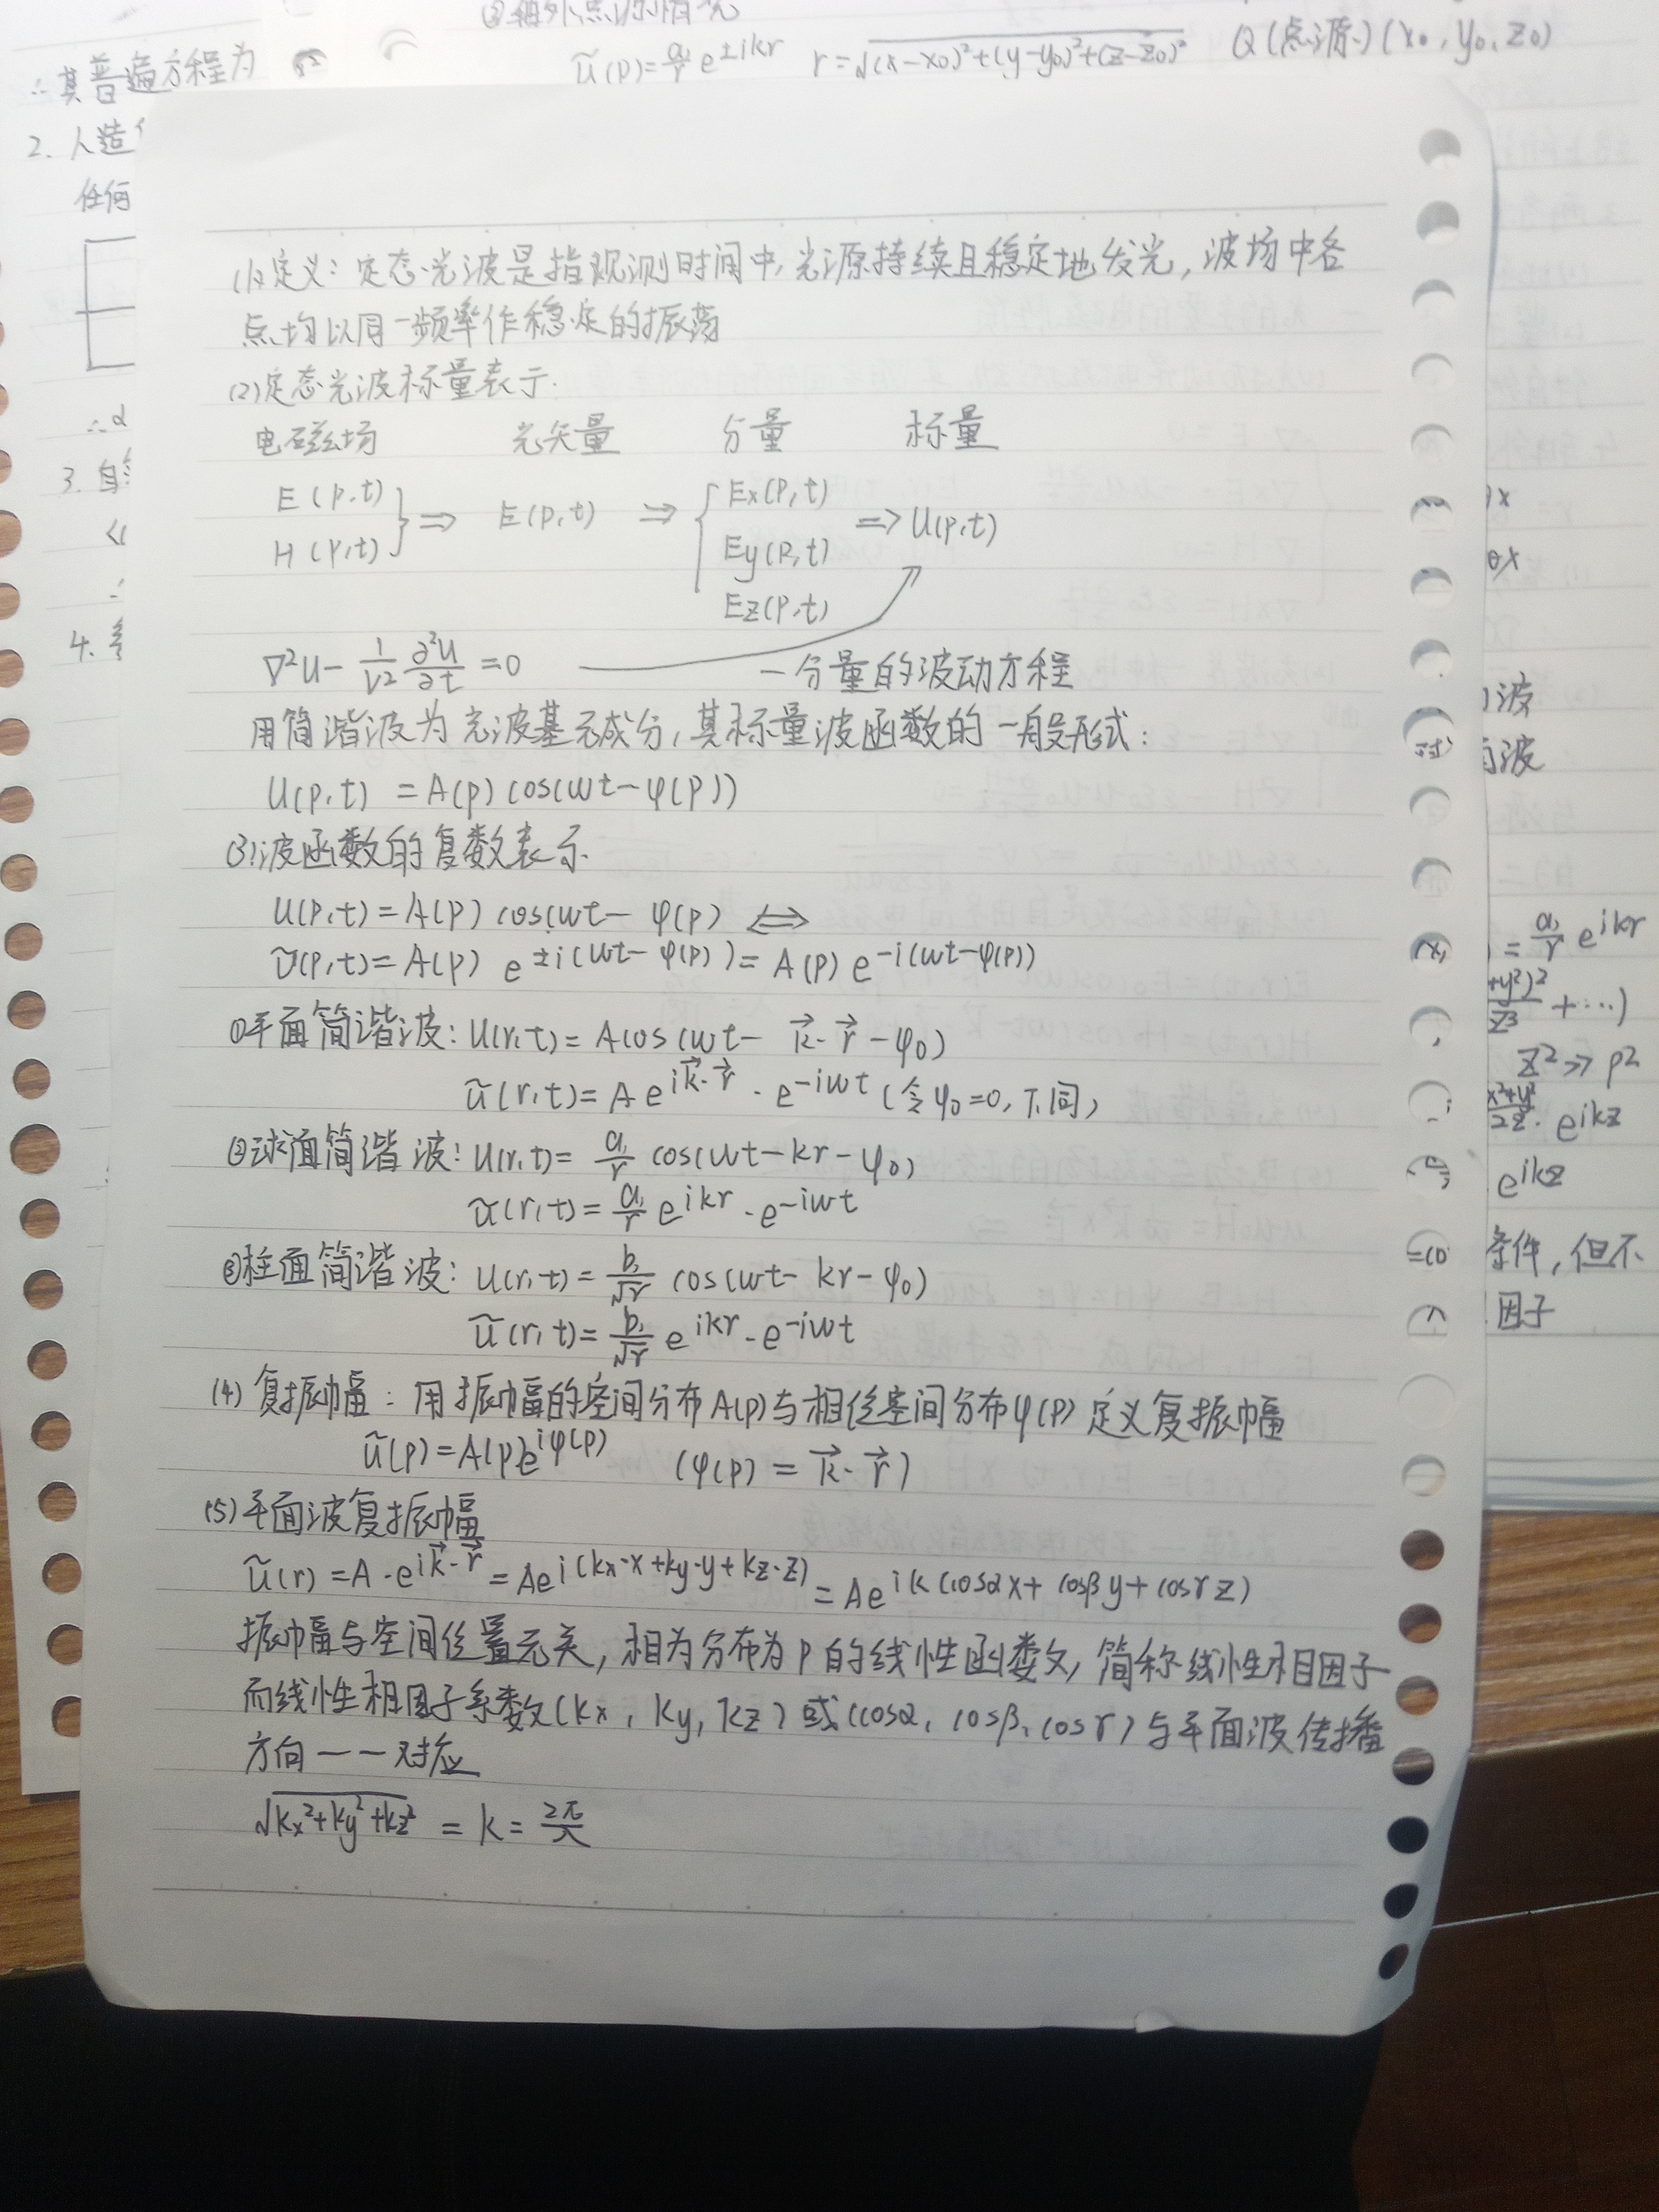 ∴其普遍方程为
ũ(p)=a₁/r e^{±ikr} r=√((x-x₀)²+(y-y₀)²+(z-z₀)²) Q(点源)(x₀,y₀,z₀)
2. 人造
任何
∴α
3. 自
4.
(1)定义:定态光波是指观测时间中,光源持续且稳定地发光,波场中各
点均以同一频率作稳定的振荡
(2)定态光波标量表示.
电磁场 光矢量 分量 标量
E(p,t) H(p,t) } ⇒ E(p,t) ⇒ { Ex(p,t) Ey(p,t) Ez(p,t) ⇒ U(p,t)
∇²U - 1/v² ∂²U/∂t = 0 一分量的波动方程
用简谐波为光波基元成分,其标量波函数的一般形式:
U(p,t) = A(p) cos(ωt-φ(p))
(3)波函数的复数表示.
U(p,t) = A(p) cos(ωt- φ(p) ⇔
Ũ(p,t) = A(p) e^{±i(ωt-φ(p))} = A(p) e^{-i(ωt-φ(p))}
①平面简谐波: U(r,t) = A cos(ωt- k⃗·r⃗ -φ₀)
ũ(r,t) = A e^{ik⃗·r⃗} · e^{-iωt} (令φ₀=0,下同)
②球面简谐波: U(r,t) = a₁/r cos(ωt-kr-φ₀)
ũ(r,t) = a₁/r e^{ikr} · e^{-iωt}
③柱面简谐波: U(r,t) = b₁/√r cos(ωt-kr-φ₀)
ũ(r,t) = b₁/√r e^{ikr} · e^{-iωt}
(4) 复振幅:用振幅的空间分布A(p)与相位空间分布φ(p)定义复振幅
ũ(p) = A(p)e^{iφ(p)} (φ(p) = k⃗·r⃗)
(5)平面波复振幅
ũ(r) = A·e^{ik⃗·r⃗} = Ae^{i(kx·x+ky·y+kz·z)} = Ae^{ik(cosαx+cosβy+cosγz)}
振幅与空间位置无关,相为分布为P的线性函数,简称线性相因子
而线性相因子系数(kx,ky,kz)或(cosα,cosβ,cosγ)与平面波传播
方向一一对应
√(kx²+ky²+kz²) = k = 2π/λ
波
波
= a₁/r e^{ikr}
+…)
z²≫ρ²
e^{ikz}
e^{ikz}
条件,但不
因子